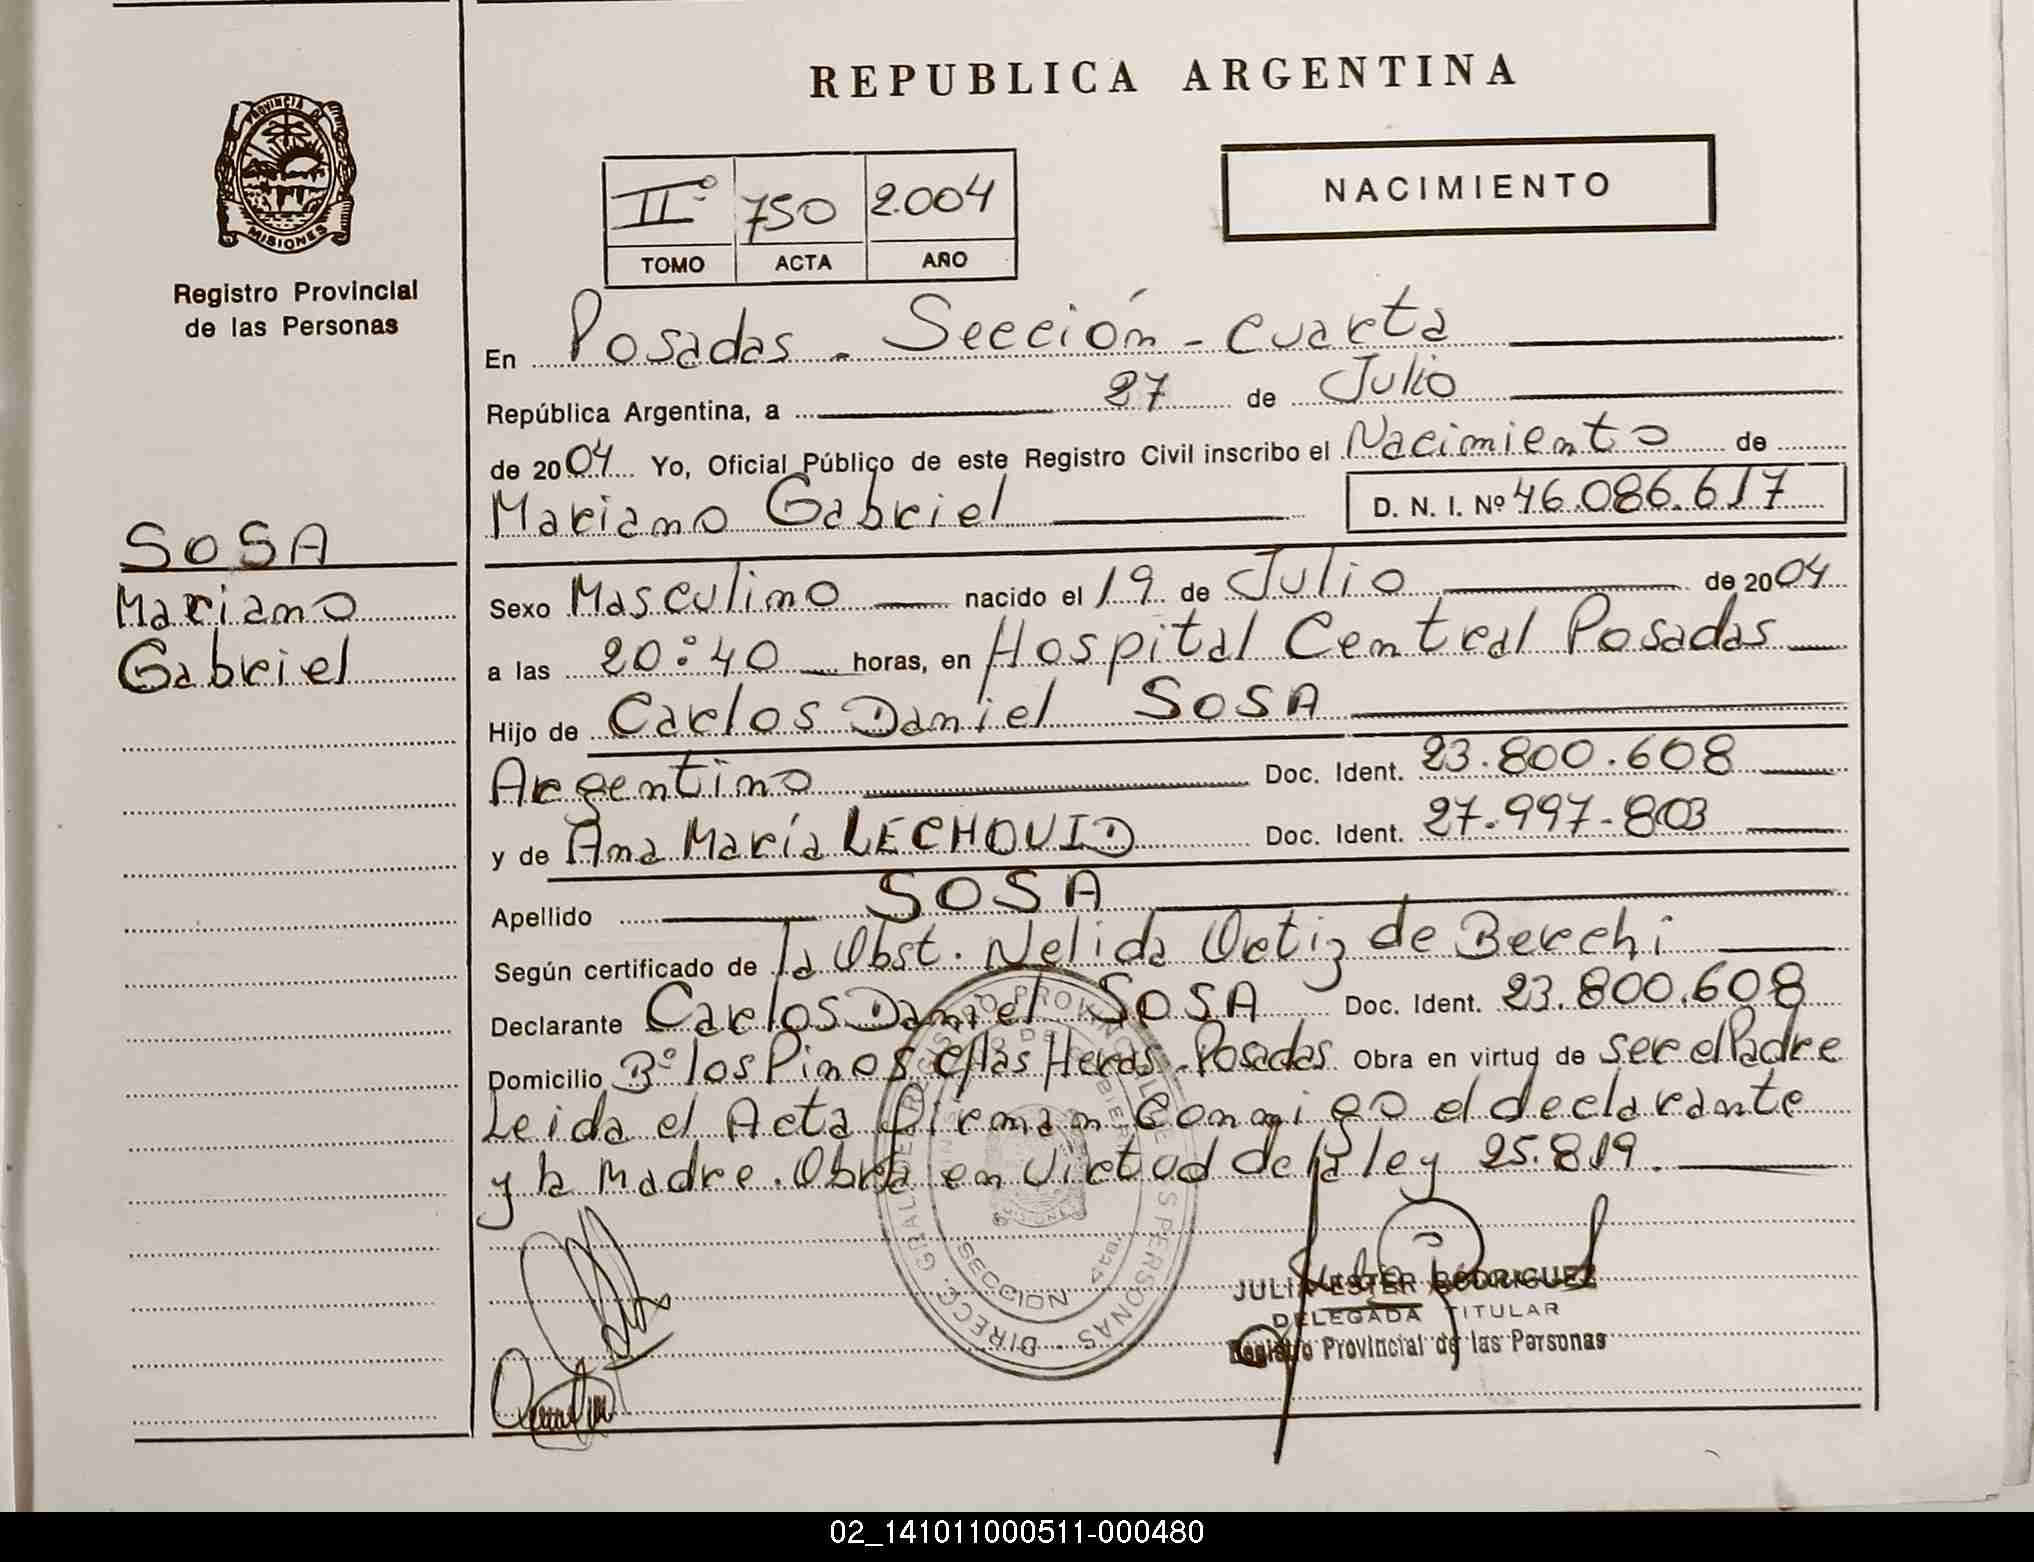 REPUBLICA ARGENTINA
PROVINCIA DE
MISIONES
Registro Provincial
de las Personas
NACIMIENTO
IIº 750 2.004
TOMO ACTA AÑO
En Posadas - Sección - Cuarta
República Argentina, a 27 de Julio
de 2004 Yo, Oficial Público de este Registro Civil inscribo el Nacimiento de
Mariano Gabriel D. N. I. Nº 46.086.617
SOSA
Mariano
Gabriel
Sexo Masculino nacido el 19 de Julio de 2004
a las 20:40 horas, en Hospital Central Posadas
Hijo de Carlos Daniel SOSA
Argentino Doc. Ident. 23.800.608
y de Ana María LECHOUID Doc. Ident. 27.997.803
Apellido SOSA
Según certificado de la Obst. Nelida Ortiz de Berchi
Declarante Carlos Daniel SOSA Doc. Ident. 23.800.608
Domicilio Bº los Pinos c/las Heras - Posadas Obra en virtud de ser el Padre
Leida el Acta firman conmigo el declarante
y la Madre. Obra en virtud de la ley 25.819.
SECCION
JULIA ESTER RODRIGUEZ
DELEGADA TITULAR
Registro Provincial de las Personas
02_141011000511-000480